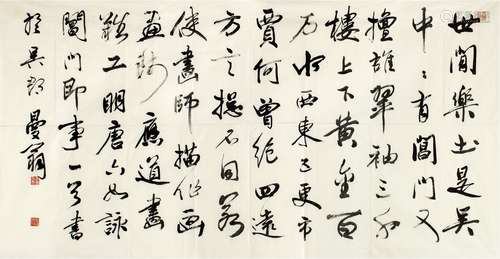 世間樂土是吳
中〻有閶門又
擅雄翠袖三千
樓上下黃金百
万水西東五更市
賈何曾絕四遠
方言總不同若
使畫師描作画
畫師應道畫
難工明唐六如詠
閶門即事一首書
於吳郡曼翁